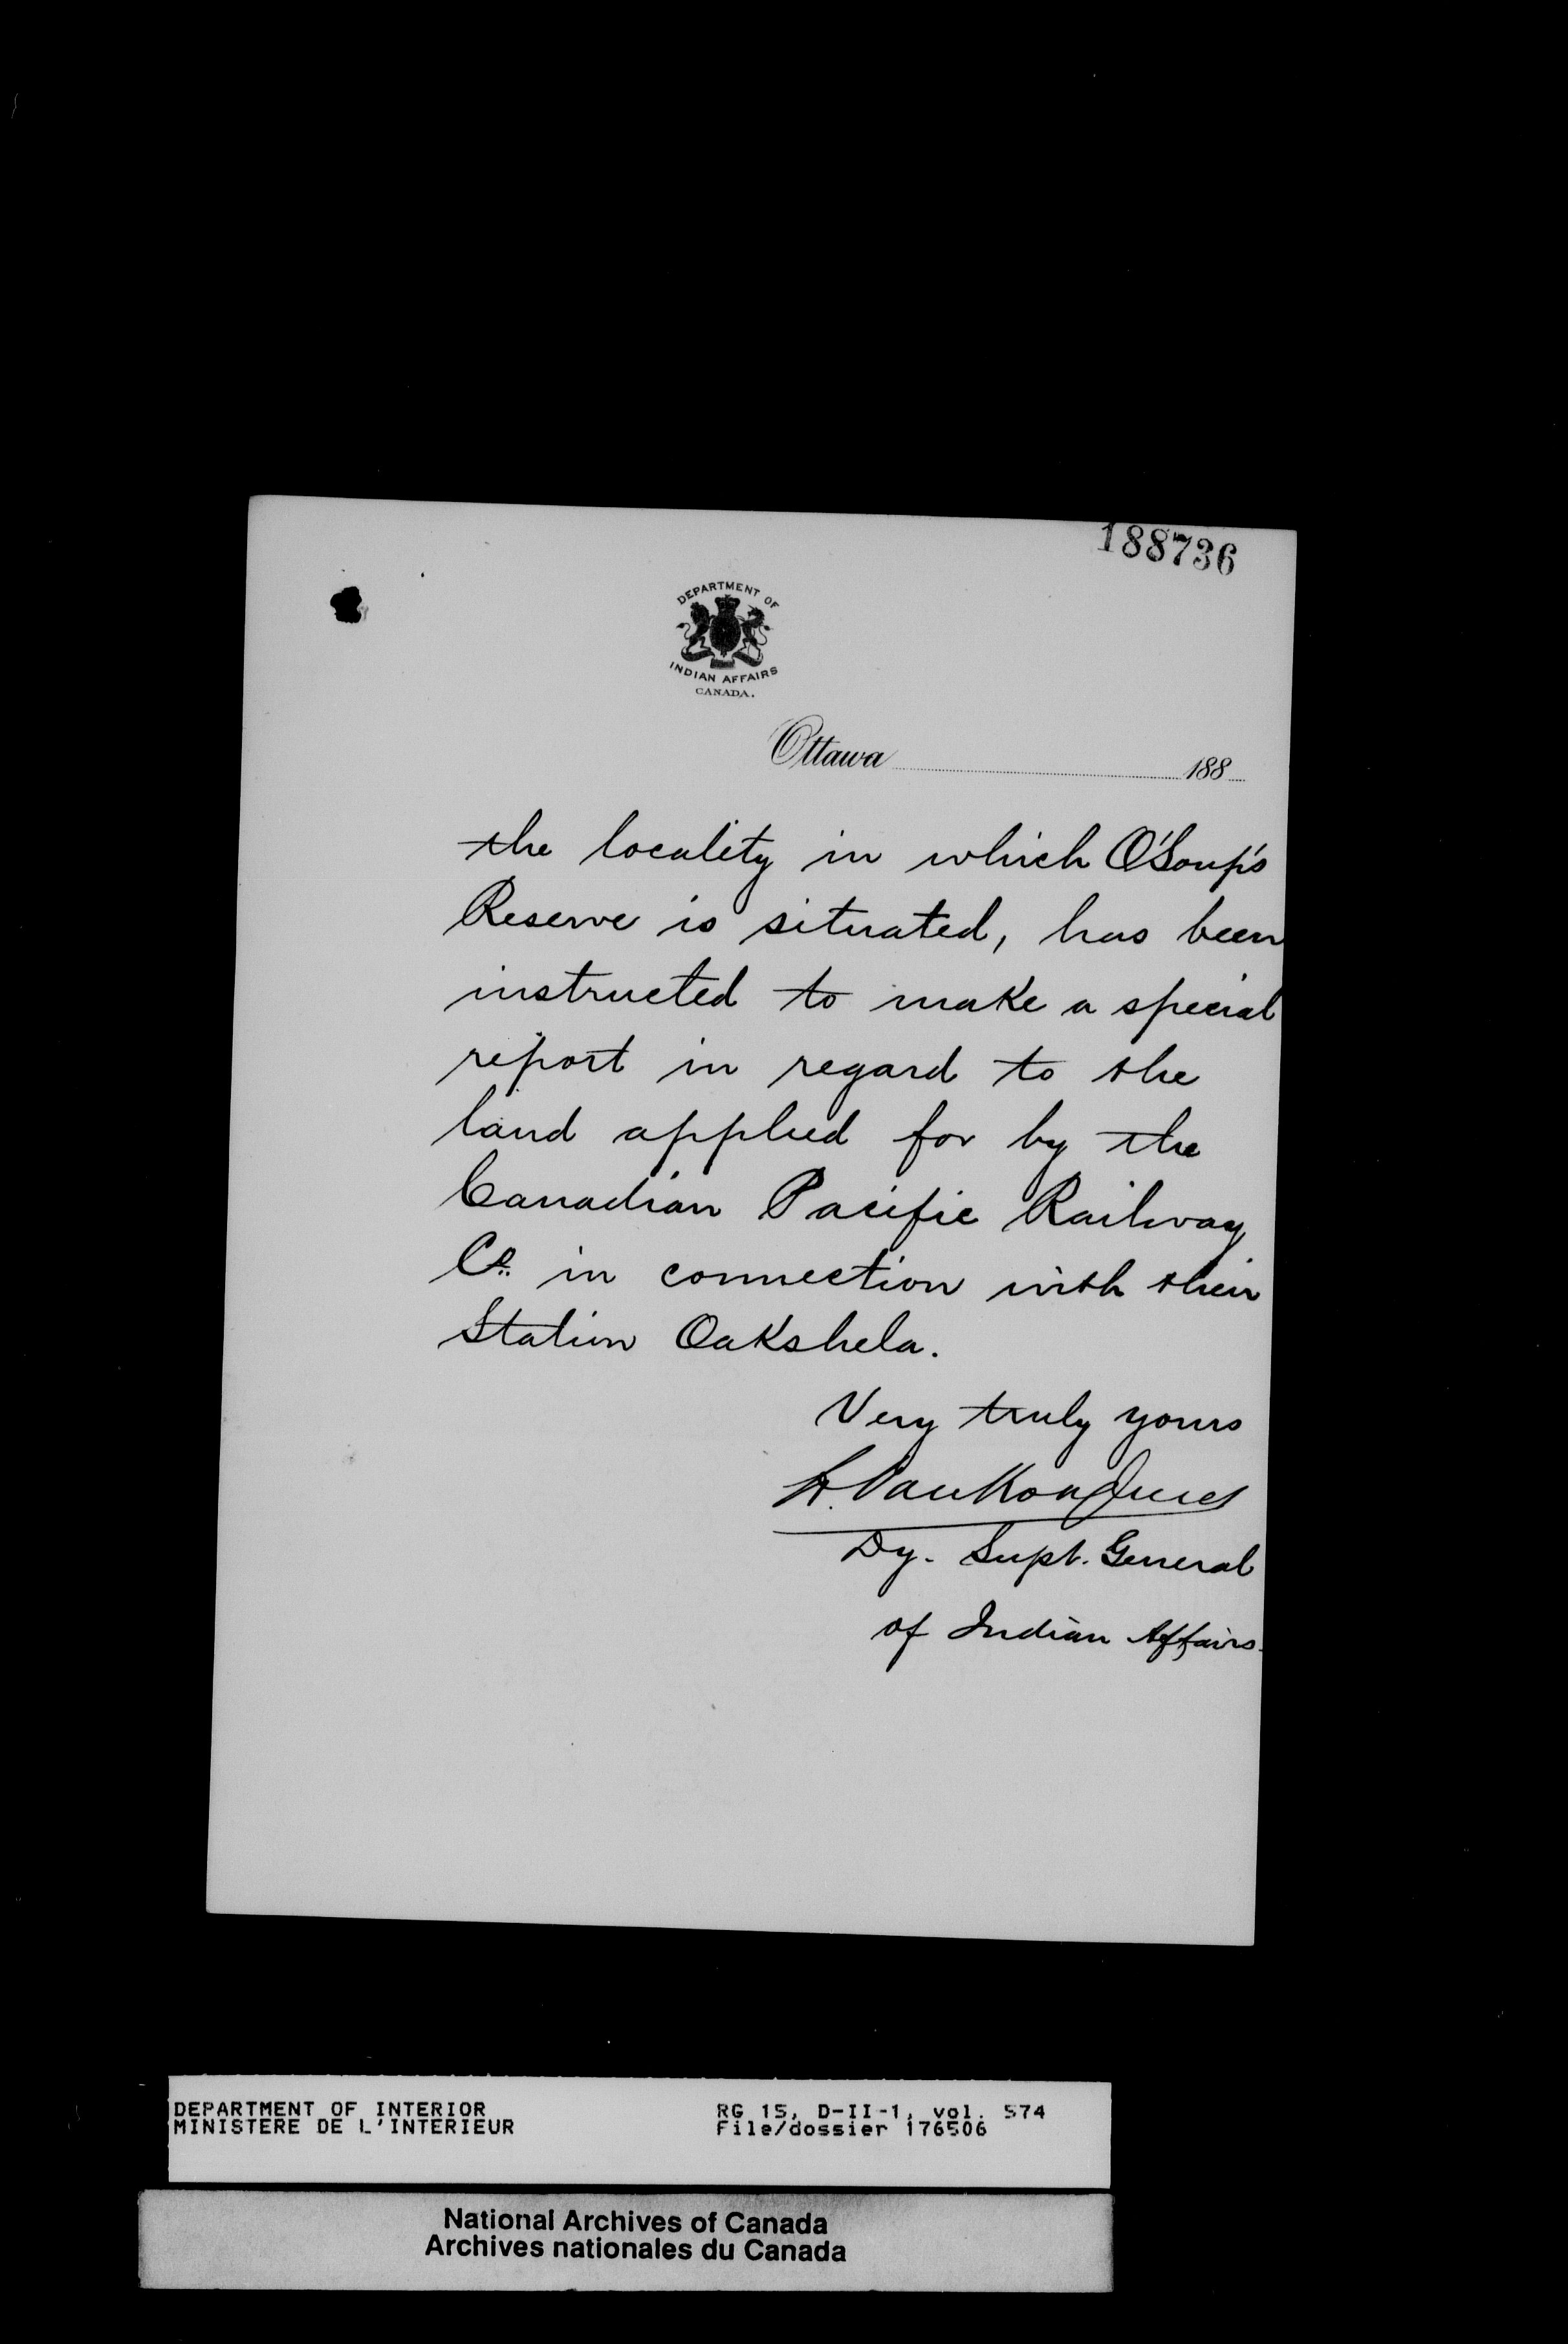 188736
DEPARTMENT OF
INDIAN AFFAIRS
CANADA.
Ottawa 188
the locality in which O'Soup's
Reserve is situated, has been
instructed to make a special
report in regard to the
land applied for by the
Canadian Pacific Railway
Co. in connection with their
Station Oakshela.
Very truly yours
L. VanKoughnet
Dy. Supt. General
of Indian Affairs.
DEPARTMENT OF INTERIOR RG 15, D-II-1, vol. 574
MINISTERE DE L'INTERIEUR File/dossier 176506
National Archives of Canada
Archives nationales du Canada